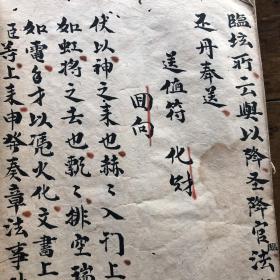 臨坛所云與以降圣降官法
丞丹奉送
送值符 化財
回向
伏以神之来也赫々入刊上
如虹将之去也飘々排空
如電 才以焉火化文書上
臣等上来申發奏章法事